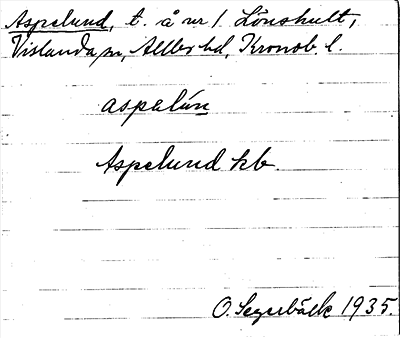 Aspelund, t. å nr 1 Lönshult,
Vislanda sn, Allbo hd, Kronob. l.
aspelún
Aspelund kb.
O. Segerbäck 1935.